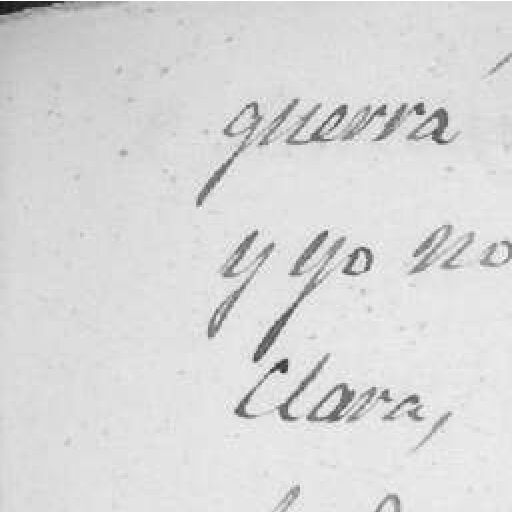 guerra
y yo no
Clara,